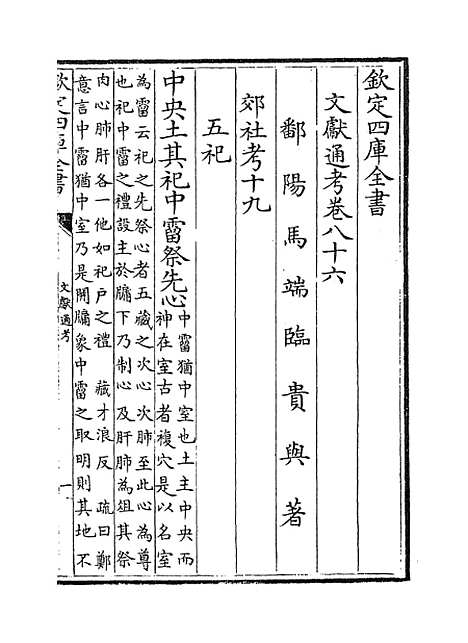 欽定四庫全書
文獻通考卷八十六
鄱陽馬端臨貴與著
郊社考十九
五祀
中央土其祀中霤祭先心中霤猶中室也土主中央而
神在室古者複穴是以名室
為霤云祀之先祭心者五藏之次心次肺至此心為尊
也祀中霤之禮設主於牖下乃制心及肝肺為俎其祭
肉心肺肝各一他如祀户之禮 藏才浪反 疏曰鄭
意言中霤猶中室乃是開牖象中霤之取明則其地不
欽定四庫全書
文獻通考
一